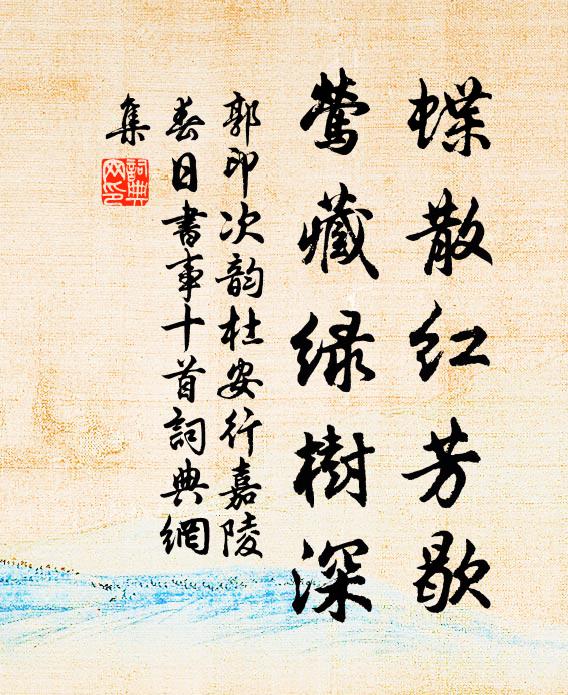 蝶散红芳歇
莺藏绿樹深
郭印次韵杜安行嘉陵
春日书事十首詞典網
集
詞典
网印